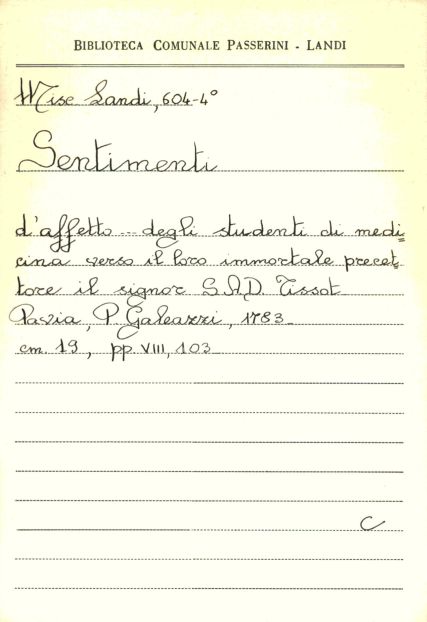 BIBLIOTECA COMUNALE PASSERINI - LANDI
Misc Landi, 604-4°
Sentimenti
d'affetto ... degli studenti di medi=
cina verso il loro immortale precet=
tore il signor S.A.D. Tissot
Pavia, P. Galeazzi, 1783
cm. 19, pp. VIII, 103
C